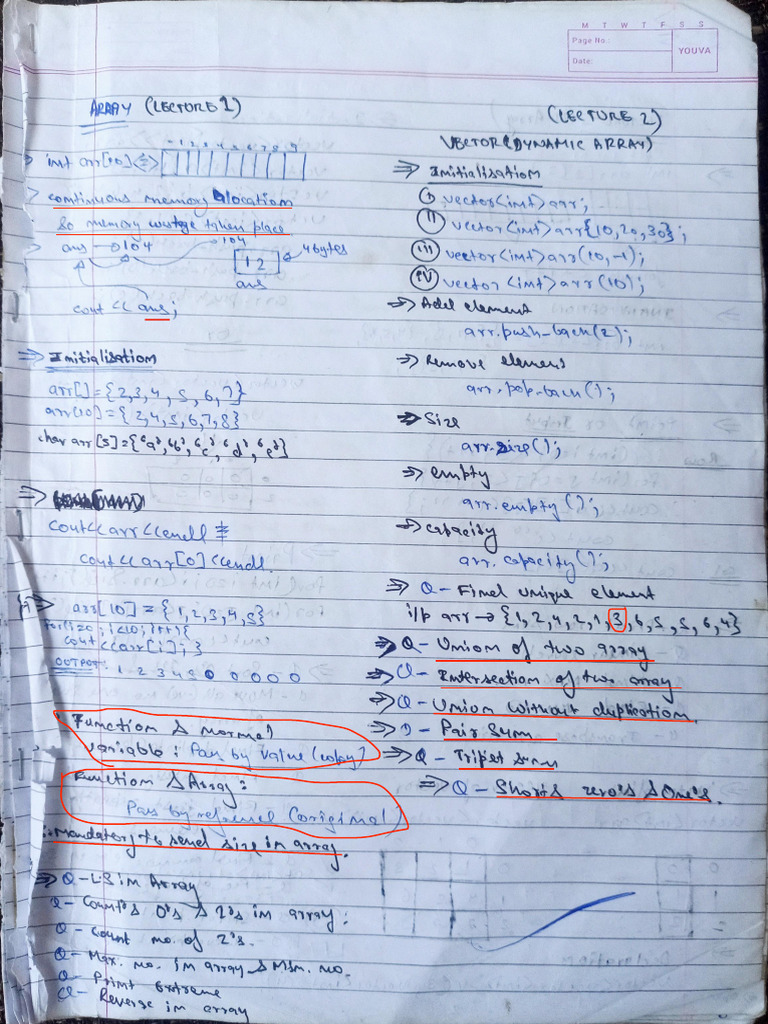 M T W T F S S
Page No.:
Date:
YOUVA
ARRAY (LECTURE 1)
0 1 2 3 4 5 6 7 8 9
int arr[10] <=>
continuous memory allocation
So memory wastage taken place
ans → 0104
0104
12
4 bytes
ans
cout << ans;
=> Initialisation
arr[] = {2,3,4,5,6,7}
arr[10] = {2,4,5,6,7,8}
char arr[5] = {'a','b','c','d','e'}
=>
cout<<arr<<endl ≠
cout<<arr[0]<<endl.
=> arr[10] = {1,2,3,4,5}
for(i=0; i<10; i++){
cout<<arr[i]; }
OUTPUT: 1 2 3 4 5 0 0 0 0 0
Function & normal
variable : Pass by value (copy)
Function & Array:
Pass by reference (original)
∴ Mandatory to send size in array.
=> Q - LS in Array
Q - Count's 0's & 1's in array.
Q - Count no. of 2's.
Q - Max. no. in array & Min. no.
Q - Print extreme
Q - Reverse in array
(LECTURE 2)
VECTOR (DYNAMIC ARRAY)
=> Initialisation
(i) vector<int> arr;
(ii) vector<int> arr{10,20,30};
(iii) vector<int> arr(10,-1);
(iv) vector<int> arr(10);
=> Add element
arr.push_back(2);
=> Remove element
arr.pop_back();
=> Size
arr.size();
=> empty
arr.empty();
=> capacity
arr.capacity();
=> Q - Find unique element
i/p arr → {1,2,4,2,1,3,6,5,5,6,4}
=> Q - Union of two array
=> Q - Intersection of two array
=> Q - Union without duplication.
=> Q - Pair Sum
=> Q - Triplet sum
=> Q - Shorts zero's & One's.